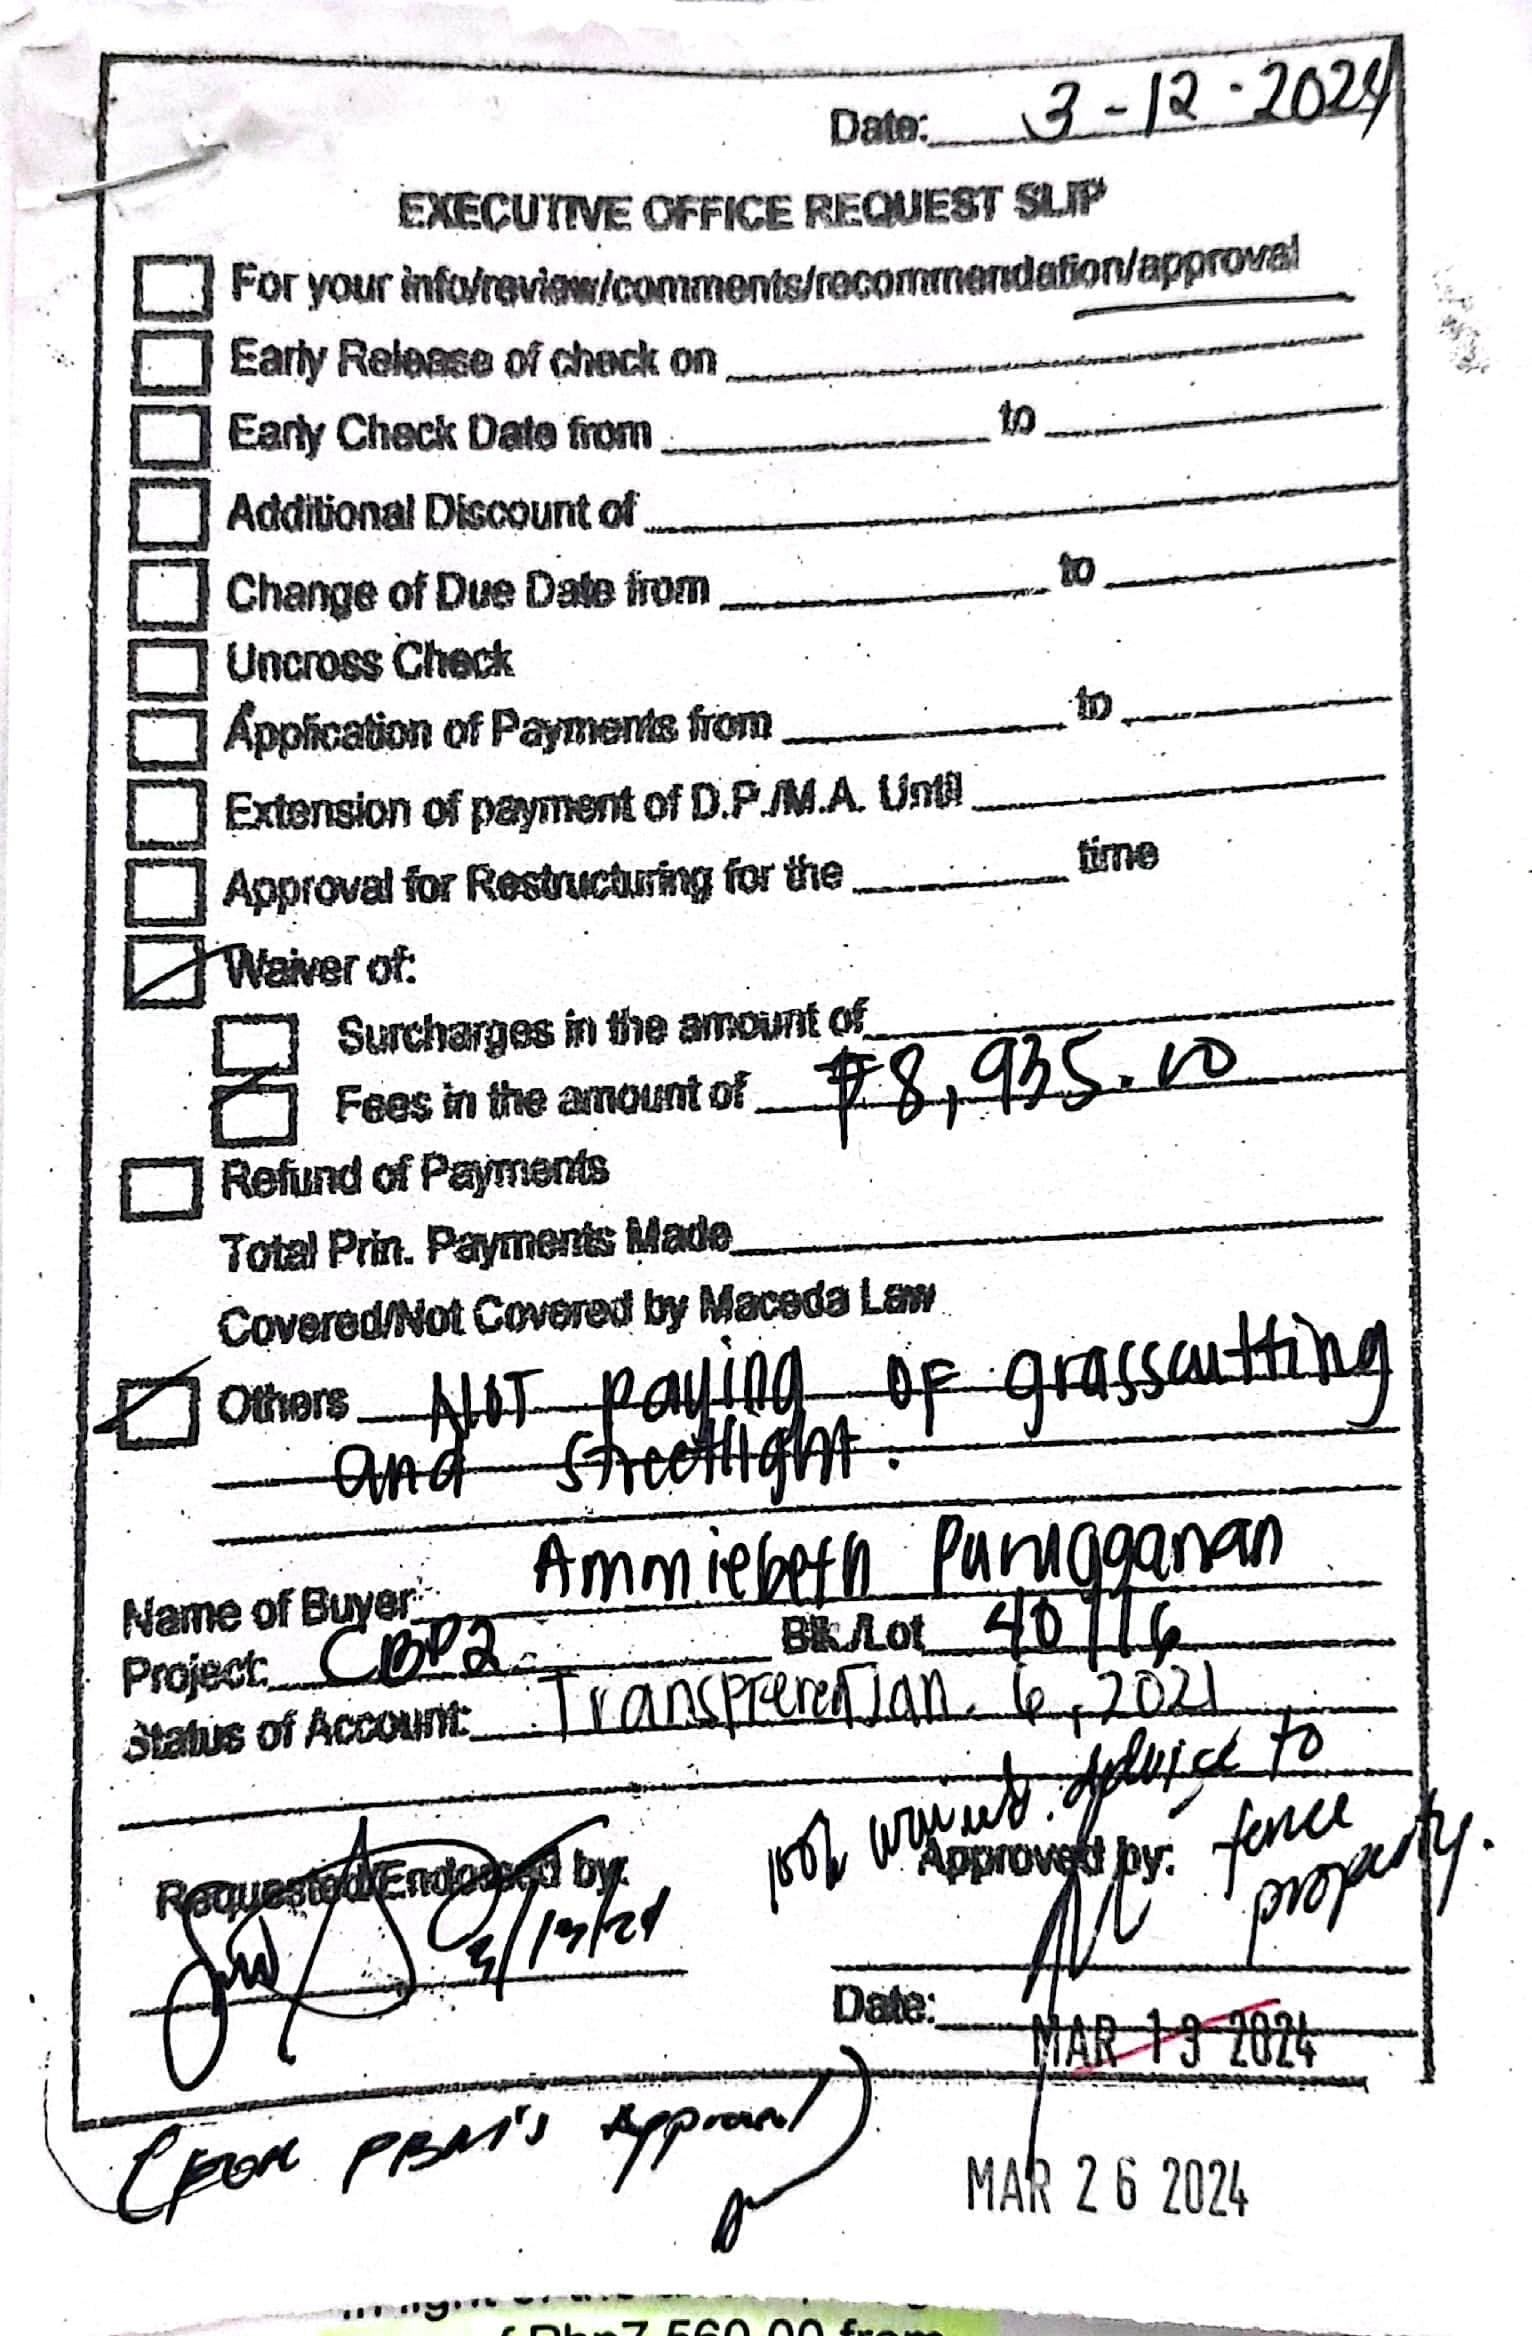 Date: 3-12-2024
EXECUTIVE OFFICE REQUEST SLIP
For your info/review/comments/recommendation/approval
Early Release of check on
Early Check Date from to
Additional Discount of
Change of Due Date from to
Uncross Check
Application of Payments from to
Extension of payment of D.P./M.A. Until
Approval for Restructuring for the time
Waiver of:
Surcharges in the amount of
Fees in the amount of ₱8,935.10
Refund of Payments
Total Prin. Payments Made
Covered/Not Covered by Maceda Law
Others NOT paying of grasscutting
and streetlight.
Name of Buyer: Ammiebeth Purugganan
Project: CBP2 Blk/Lot 40/16
Status of Account: Jan. 6, 2021
100% waived. Advice to
fence
property.
Requested/Endorsed by: Approved by:
3/13/24
Date: MAR 13 2024
(FOR PBM's Approval)
MAR 26 2024